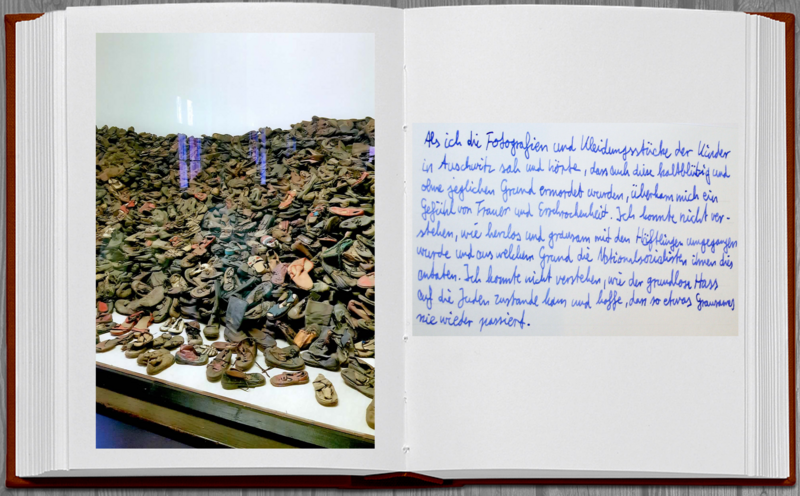 Als ich die Fotografien und Kleidungsstücke der Kinder
in Auschwitz sah und hörte, dass auch diese kaltblütig und
ohne jeglichen Grund ermordet wurden, überkam mich ein
Gefühl von Trauer und Erschrockenheit. Ich konnte nicht ver-
stehen, wie herzlos und grausam mit den Häftlingen umgegangen
wurde und aus welchem Grund die Nationalsozialisten ihnen dies
antaten. Ich konnte nicht verstehen, wie der grundlose Hass
auf die Juden zustande kam und hoffe, dass so etwas Grausames
nie wieder passiert.